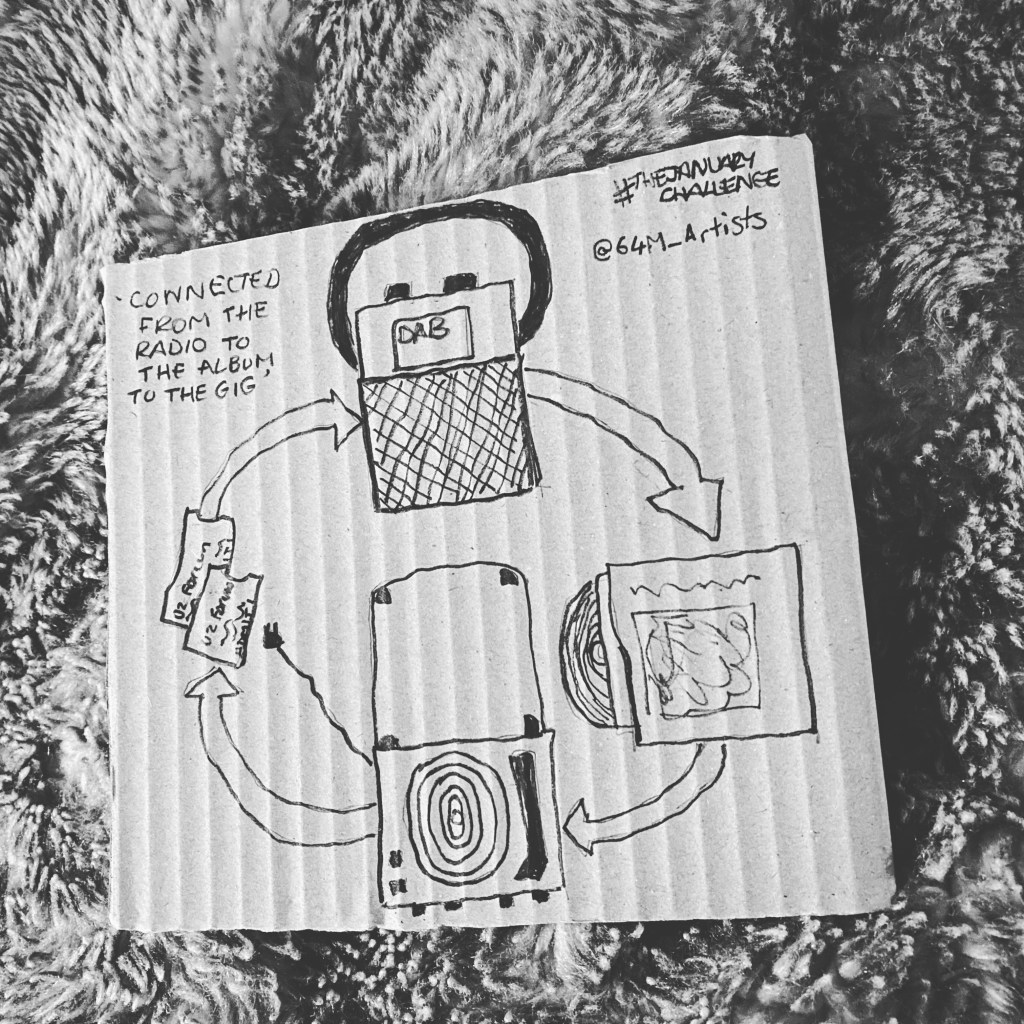 #THEJANUARY
CHALLENGE
@64M_Artists
CONNECTED
FROM THE
RADIO TO
THE ALBUM,
TO THE GIG
DAB